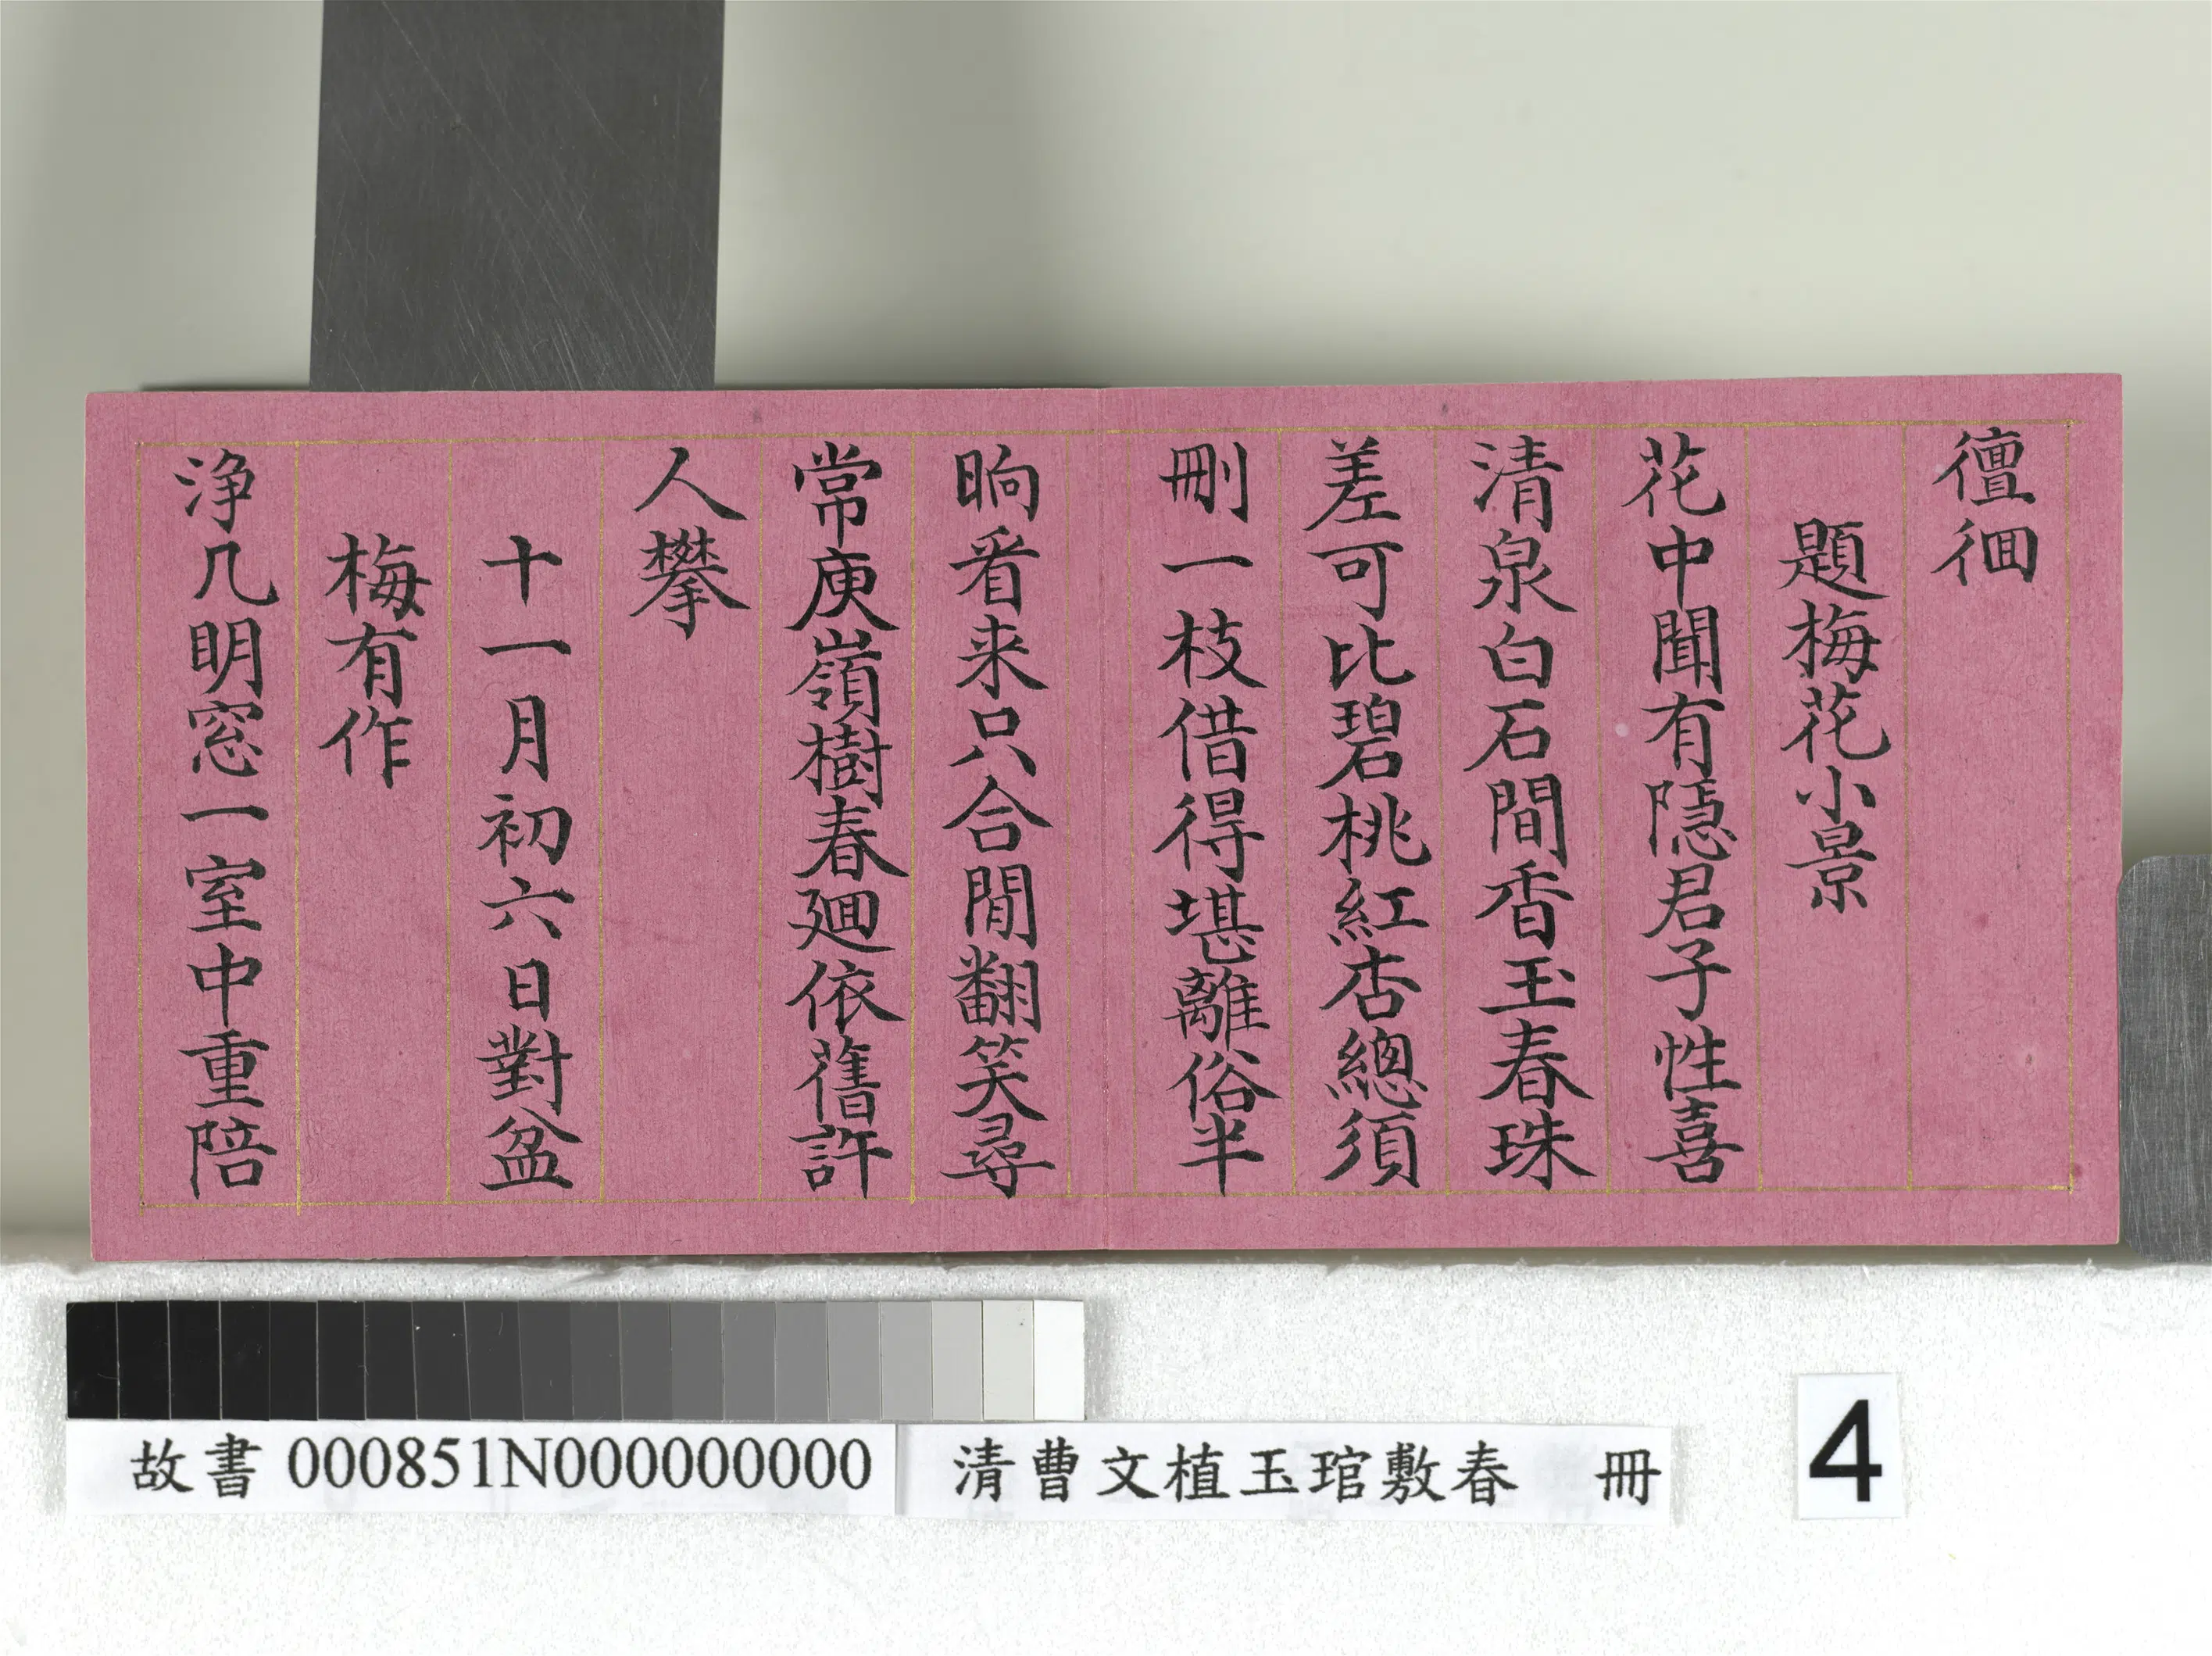 儃佪
題梅花小景
花中聞有隱君子性喜
清泉白石間香玉春珠
差可比碧桃紅杏總須
刪一枝借得堪離俗半
晌看来只合閒翻笑尋
常庾嶺樹春廻依舊許
人攀
十一月初六日對盆
梅有作
浄几明窓一室中重陪
故書000851N000000000
清曹文植玉琯敷春 冊
4